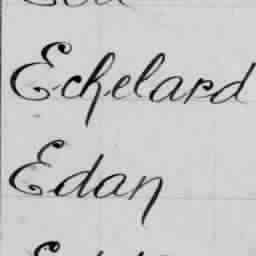 Echelard
Edan